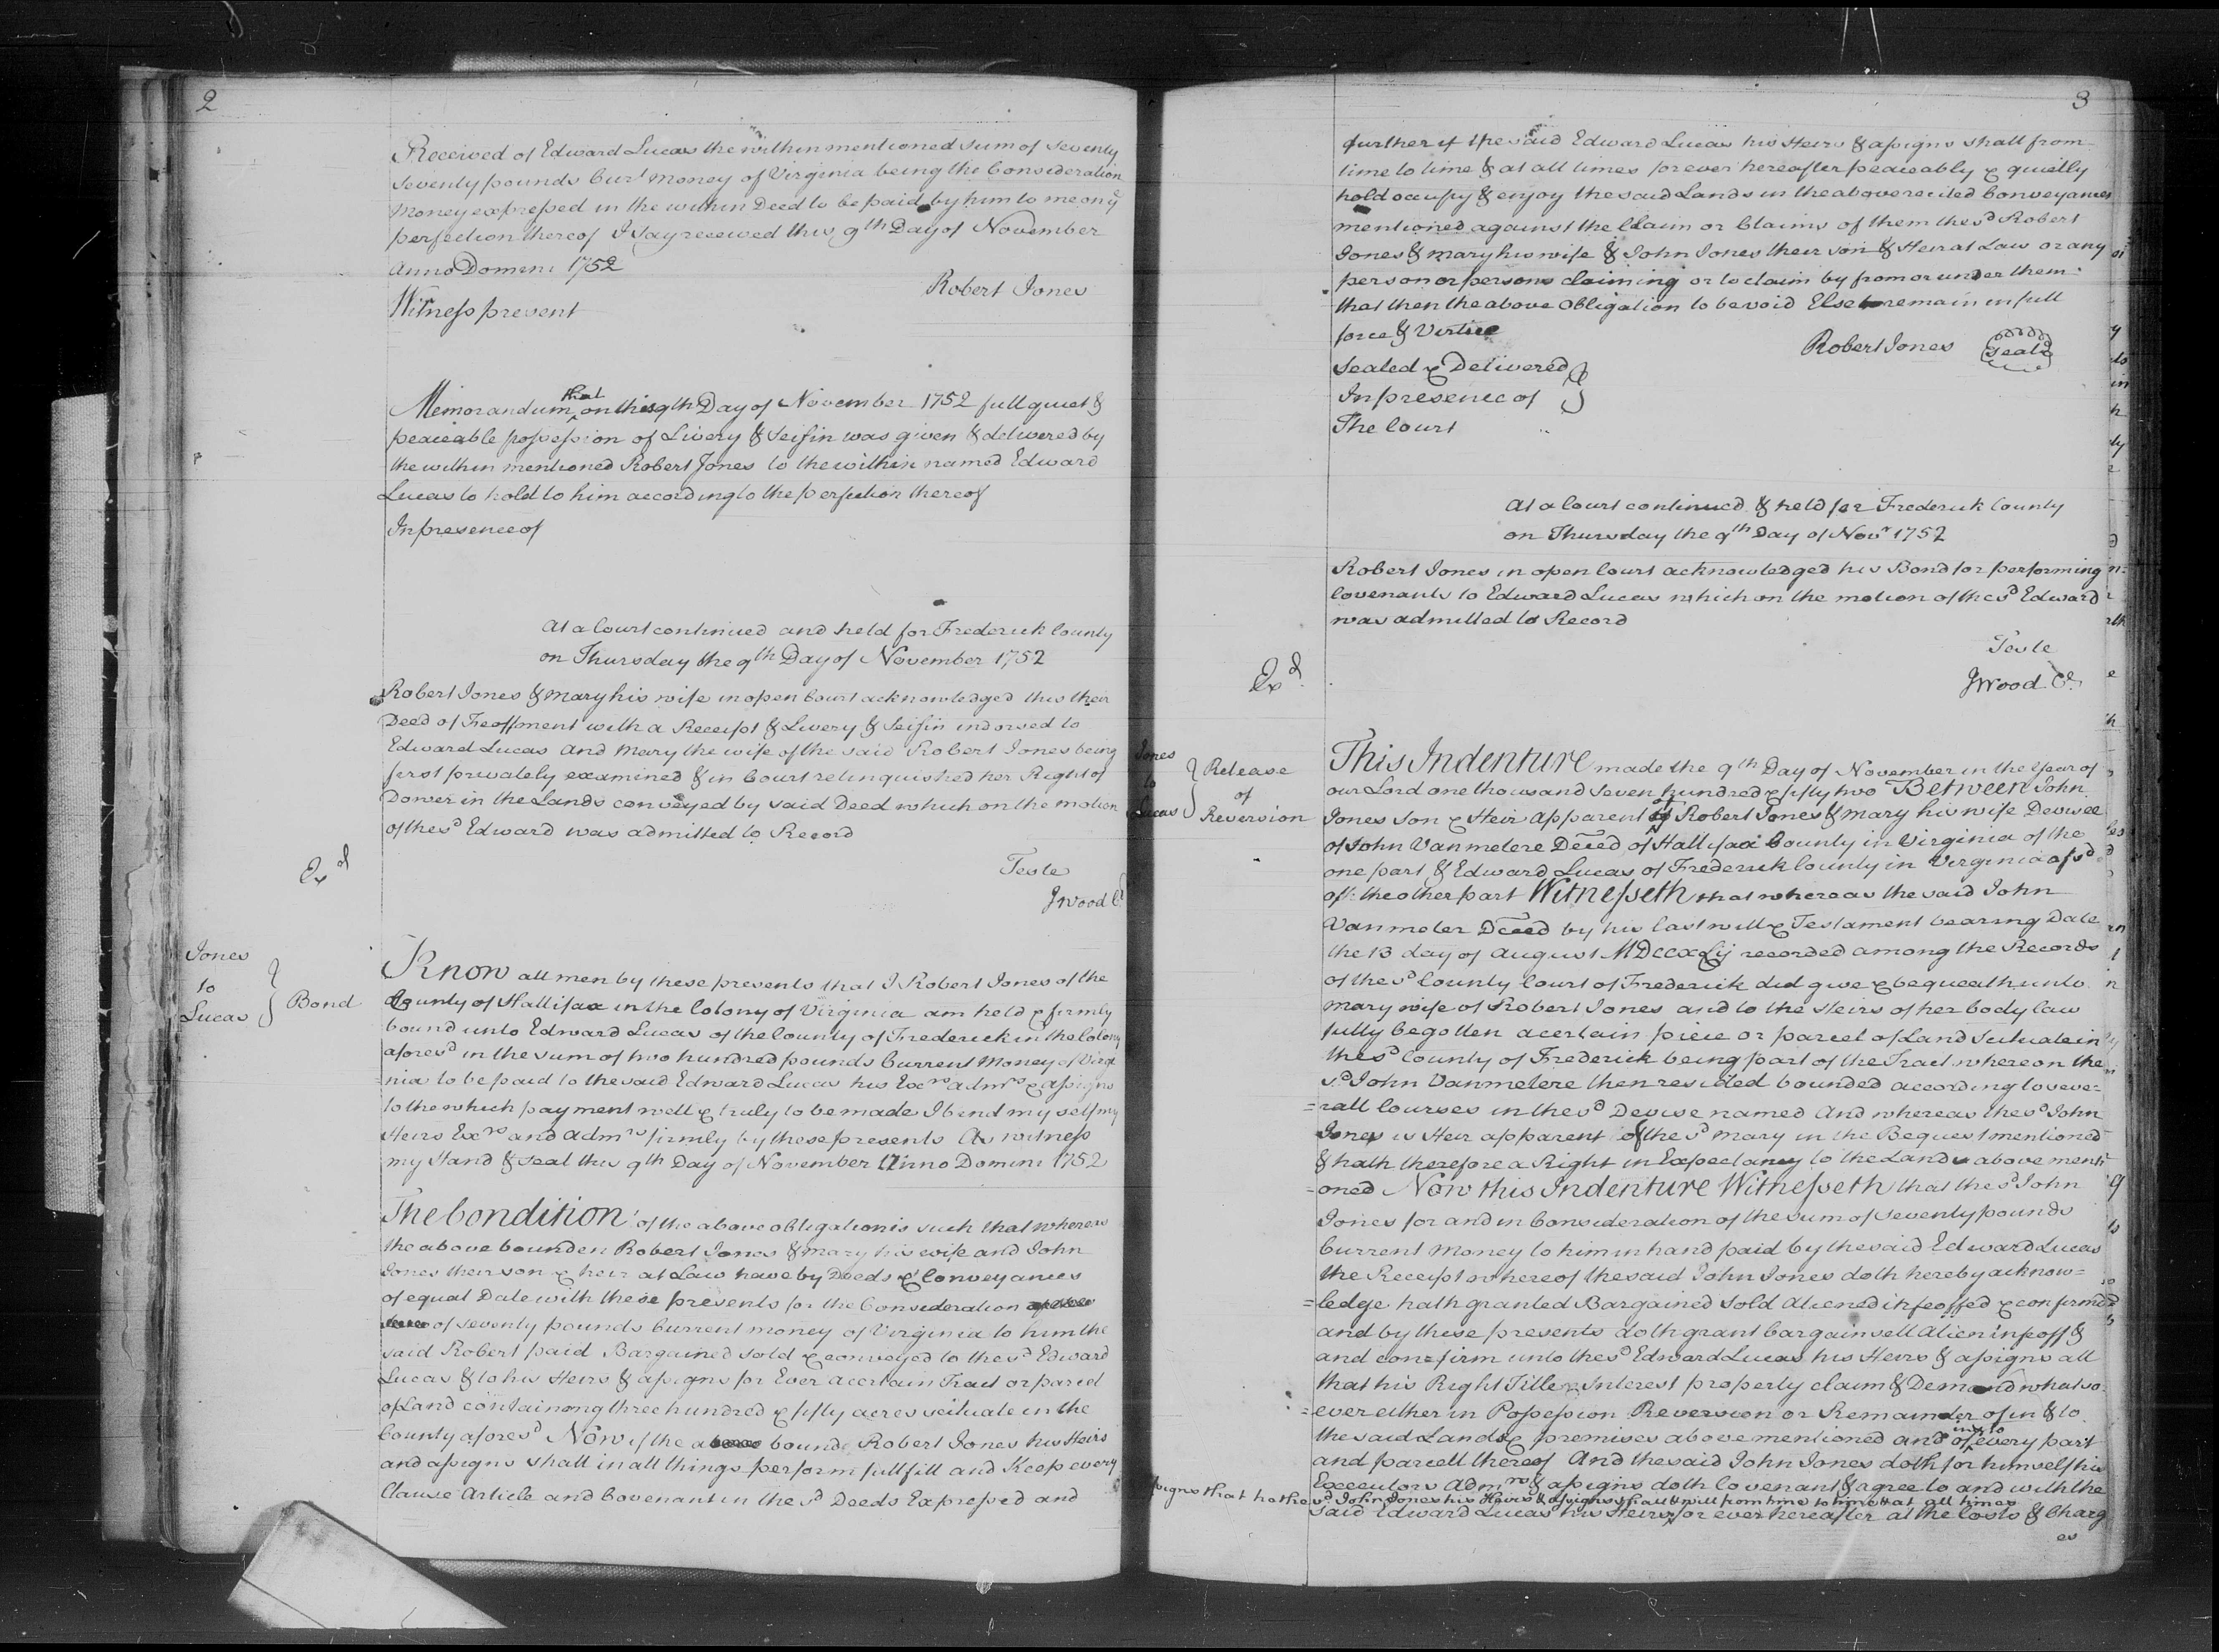 2
Received of Edward Lucas the within mentioned sum of seventy
seventy pounds Curt Money of Virginia being the Consideration
Money expressed in the within Deed to be paid by him to me on ye
perfection thereof I say received this 9th Day of November
Anno Domini 1752
Robert Jones
Witness present
Memorandum that on this 9th Day of November 1752 full quiet &
peaceable possession of Livery & Seisin was given & delivered by
the within mentioned Robert Jones to the within named Edward
Lucas to hold to him according to the perfection thereof
In presence of
At a Court continued and held for Frederick County
on Thursday the 9th Day of November 1752
Robert Jones & Mary his wife in open Court acknowledged this their
Deed of Feoffment with a Receipt & Livery & Seisin indorsed to
Edward Lucas And Mary the wife of the said Robert Jones being
first privately examined & in Court relinquished her Right of
Dower in the Lands conveyed by said Deed which on the motion
of the sd Edward was admitted to Record
Exd
Teste
JWood Cl
Jones
to
Lucas
} Bond
Know all men by these presents that I Robert Jones of the
County of Hallifax in the Colony of Virginia am held & firmly
bound unto Edward Lucas of the County of Frederick in the Colony
aforesd in the sum of two hundred pounds Current Money of Virgi
=nia to be paid to the said Edward Lucas his Exrs Admrs & assigns
to the which payment well & truly to be made I bend my self my
Heirs Exrs and Admrs firmly by these presents As witness
my Hand & Seal this 9th Day of November Anno Domini 1752
The Condition of the above obligation is such that whereas
the above bounden Robert Jones & Mary his wife and John
Jones their son & heir at Law have by Deeds & Conveyances
of equal Date with these presents for the Consideration
of seventy pounds Current money of Virginia to him the
said Robert paid Bargained sold & conveyed to the sd Edward
Lucas & to his Heirs & assigns for Ever a certain Tract or parcel
of Land containong three hundred & fifty acres scituate in the
County aforesd Now if the above bound Robert Jones his Heirs
and assigns shall in all things perform fullfill and Keep every
Clause Article and Covenant in the sd Deeds Expressed and
3
further if the said Edward Lucas his Heirs & assigns shall from
time to time & at all times for ever hereafter peaceably & quietly
hold occupy & enjoy the said Lands in the above recited Conveyances
mentioned against the Claim or Claims of them the sd Robert
Jones & Mary his wife & John Jones their son & Heir at Law or any
person or persons claiming or to claim by from or under them
that then the above Obligation to be void Else to remain in full
force & Virtue
Robert Jones Seal
Sealed & Delivered }
In presence of }
The Court
At a Court continued & held for Frederick County
on Thursday the 9th Day of Novr 1752
Robert Jones in open Court acknowledged his Bond for performing
Covenants to Edward Lucas which on the motion of the sd Edward
was admitted to Record
Teste
Exd
JWood Cl
Jones
to
Lucas
} Release
of
Reversion
This Indenture made the 9th Day of November in the Year of
our Lord one thousand seven hundred & fifty two Between John
Jones Son & Heir apparent of Robert Jones & Mary his wife Devisee
of John Vanmetere Deced of Hallifax County in Virginia of the
one part & Edward Lucas of Frederick County in Virginia afsd
of the other part Witnesseth that whereas the said John
Vanmeter Deced by his last will & Testament bearing Date
the 13 day of August MDCCXLij recorded among the Records
of the sd County Court of Frederick did give & bequeath unto
Mary wife of Robert Jones and to the Heirs of her body law
fully begotten a certain piece or parcel of Land Scituate in
the sd County of Frederick being part of the Tract whereon the
sd John Vanmetere then resided bounded according to seve=
=rall Courses in the sd Devise named And whereas the sd John
Jones is Heir apparent of the sd Mary in the Bequest mentioned
& hath therefore a Right in Expectancy to the Lands above menti
=oned Now this Indenture Witnesseth that the sd John
Jones for and in Consideration of the sum of seventy pounds
Current Money to him in hand paid by the said Edward Lucas
the Receipt whereof the said John Jones doth hereby acknow=
=ledge hath granted Bargained Sold Aliened infeoffed & confirmed
and by these presents doth grant bargain sell Alien infeoff &
and confirm unto the sd Edward Lucas his Heirs & assigns all
that his Right Title & Interest property claim & Demand whatso
=ever either in Possession Reversion or Remainder of in & to
the said Lands & premises above mentioned and of in & to every part
and parcell thereof And the said John Jones doth for himself his
Executors Admrs & assigns doth Covenant & agree to and with the
ssigns that he the sd John Jones his Heirs & assigns shall & will from time to time & at all times
said Edward Lucas his Heirs for ever hereafter at the Costs & Charg
es